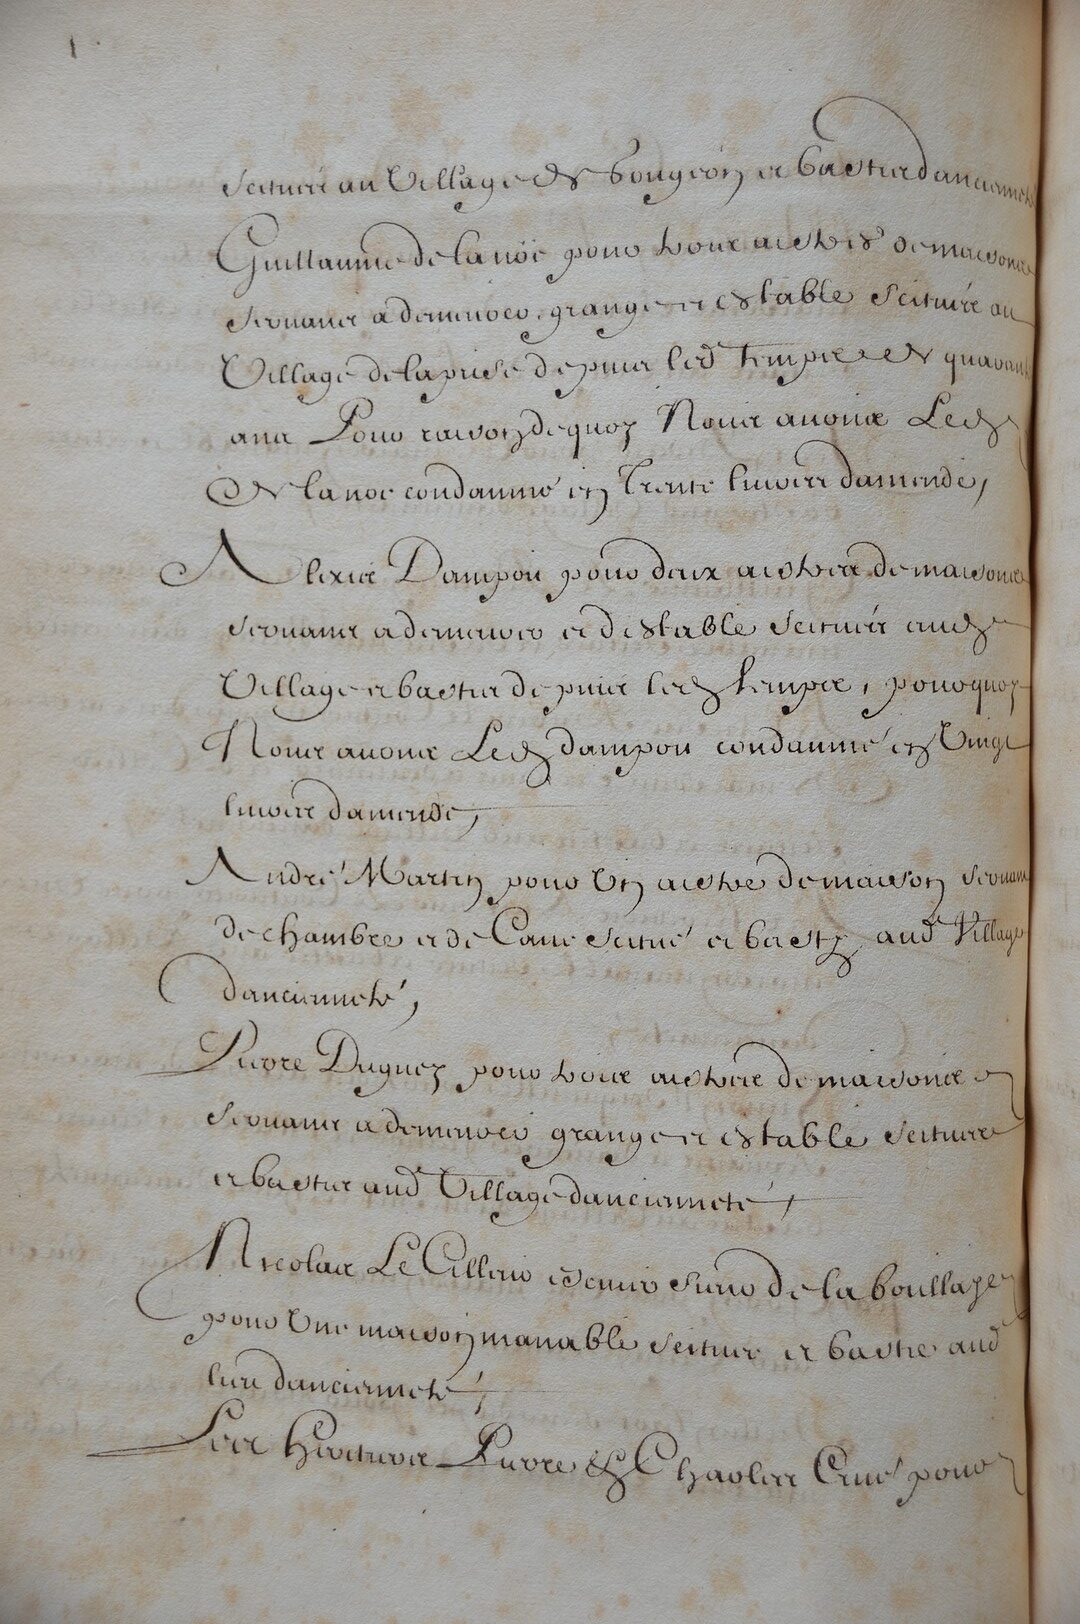 scitués au Village de bougeon et basties danciennete
Guillaume de lanoë pour trois aistres de maisons
servants a demeurer, grange et estable scitués au
Village de la prise depuis led temps de quarante
ans Pour raison de quoy Nous avons Led
de lanoe condamné en Trente livres damende,
Alexis Dampou pour deux aistres de maisons
servants a demeurer et destable scitués aud
Village et bastis depuis led temps, pourquoy
Nous avons Led dampou condamné en Vingt
livres damende,
André Martin pour Un aistre de maison servant
de chambre et de Cave scitué et basty aud Village
dancienneté,
Pierre Duguey pour trois aistres de maisons
servants a demeurer grange et estable scitués
et bastis aud Village dancienneté,
Nicolas Le Cilleur escuier sieur de la boullaye
pour Une maison manable scituée et bastie aud
lieu danciennete,
Les Heritiers Pierre & Charles pour